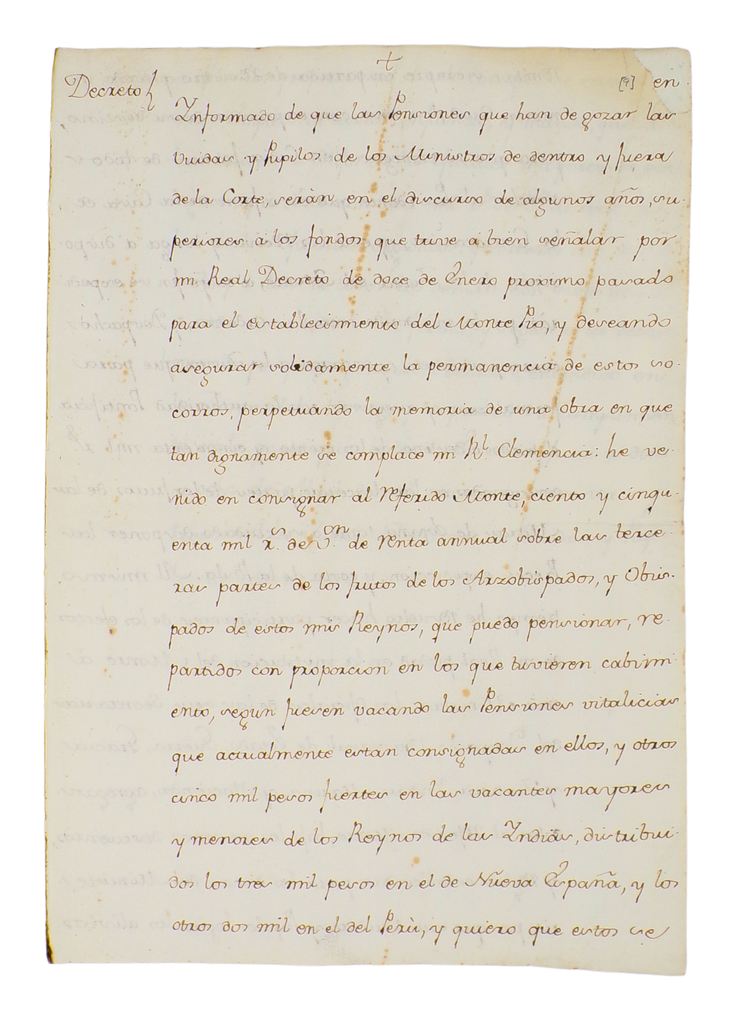 +
Decreto
[9] en
Informado de que las Pensiones que han de gozar las
Viudas y Pupilos de los Ministros de dentro y fuera
de la Corte, seràn en el discurso de algunos años, su-
periores à los fondos que tuve à bien señalar por
mi Real Decreto de doce de Enero proximo pasado
para el establecimiento del Monte Pio, y deseando
asegurar solidamente la permanencia de estos so-
corros, perpetuando la memoria de una obra en que
tan dignamente se complace mi Rl Clemencia: he ve-
nido en consignar al referido Monte, ciento y cinqu-
enta mil rs. de von de renta annual sobre las terce-
ras partes de los frutos de los Arzobispados, y Obis-
pados de estos mis Reynos, que puedo pensionar, re-
partidos con proporcion en los que tuvieren cabimi-
ento, segun fuesen vacando las Pensiones vitalicias
que actualmente estan consignadas en ellos, y otros
cinco mil pesos fuertes en las vacantes mayores
y menores de los Reynos de las Indias, distribui-
dos los tres mil pesos en el de Nueva España, y los
otros dos mil en el del Perù, y quiero que estos se